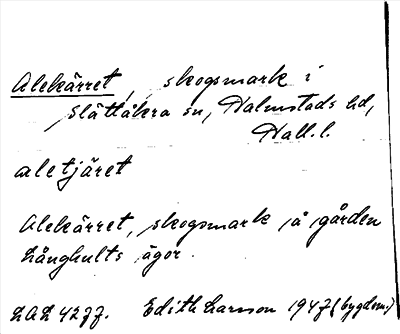 Alekärret, skogsmark i
Slättåkra sn, Halmstads hd,
Hall. l.
aletjäret
Alekärret, skogsmark å gården
Långhults ägor.
LAL 4277. Edith Larsson 1947 (bygdem.)